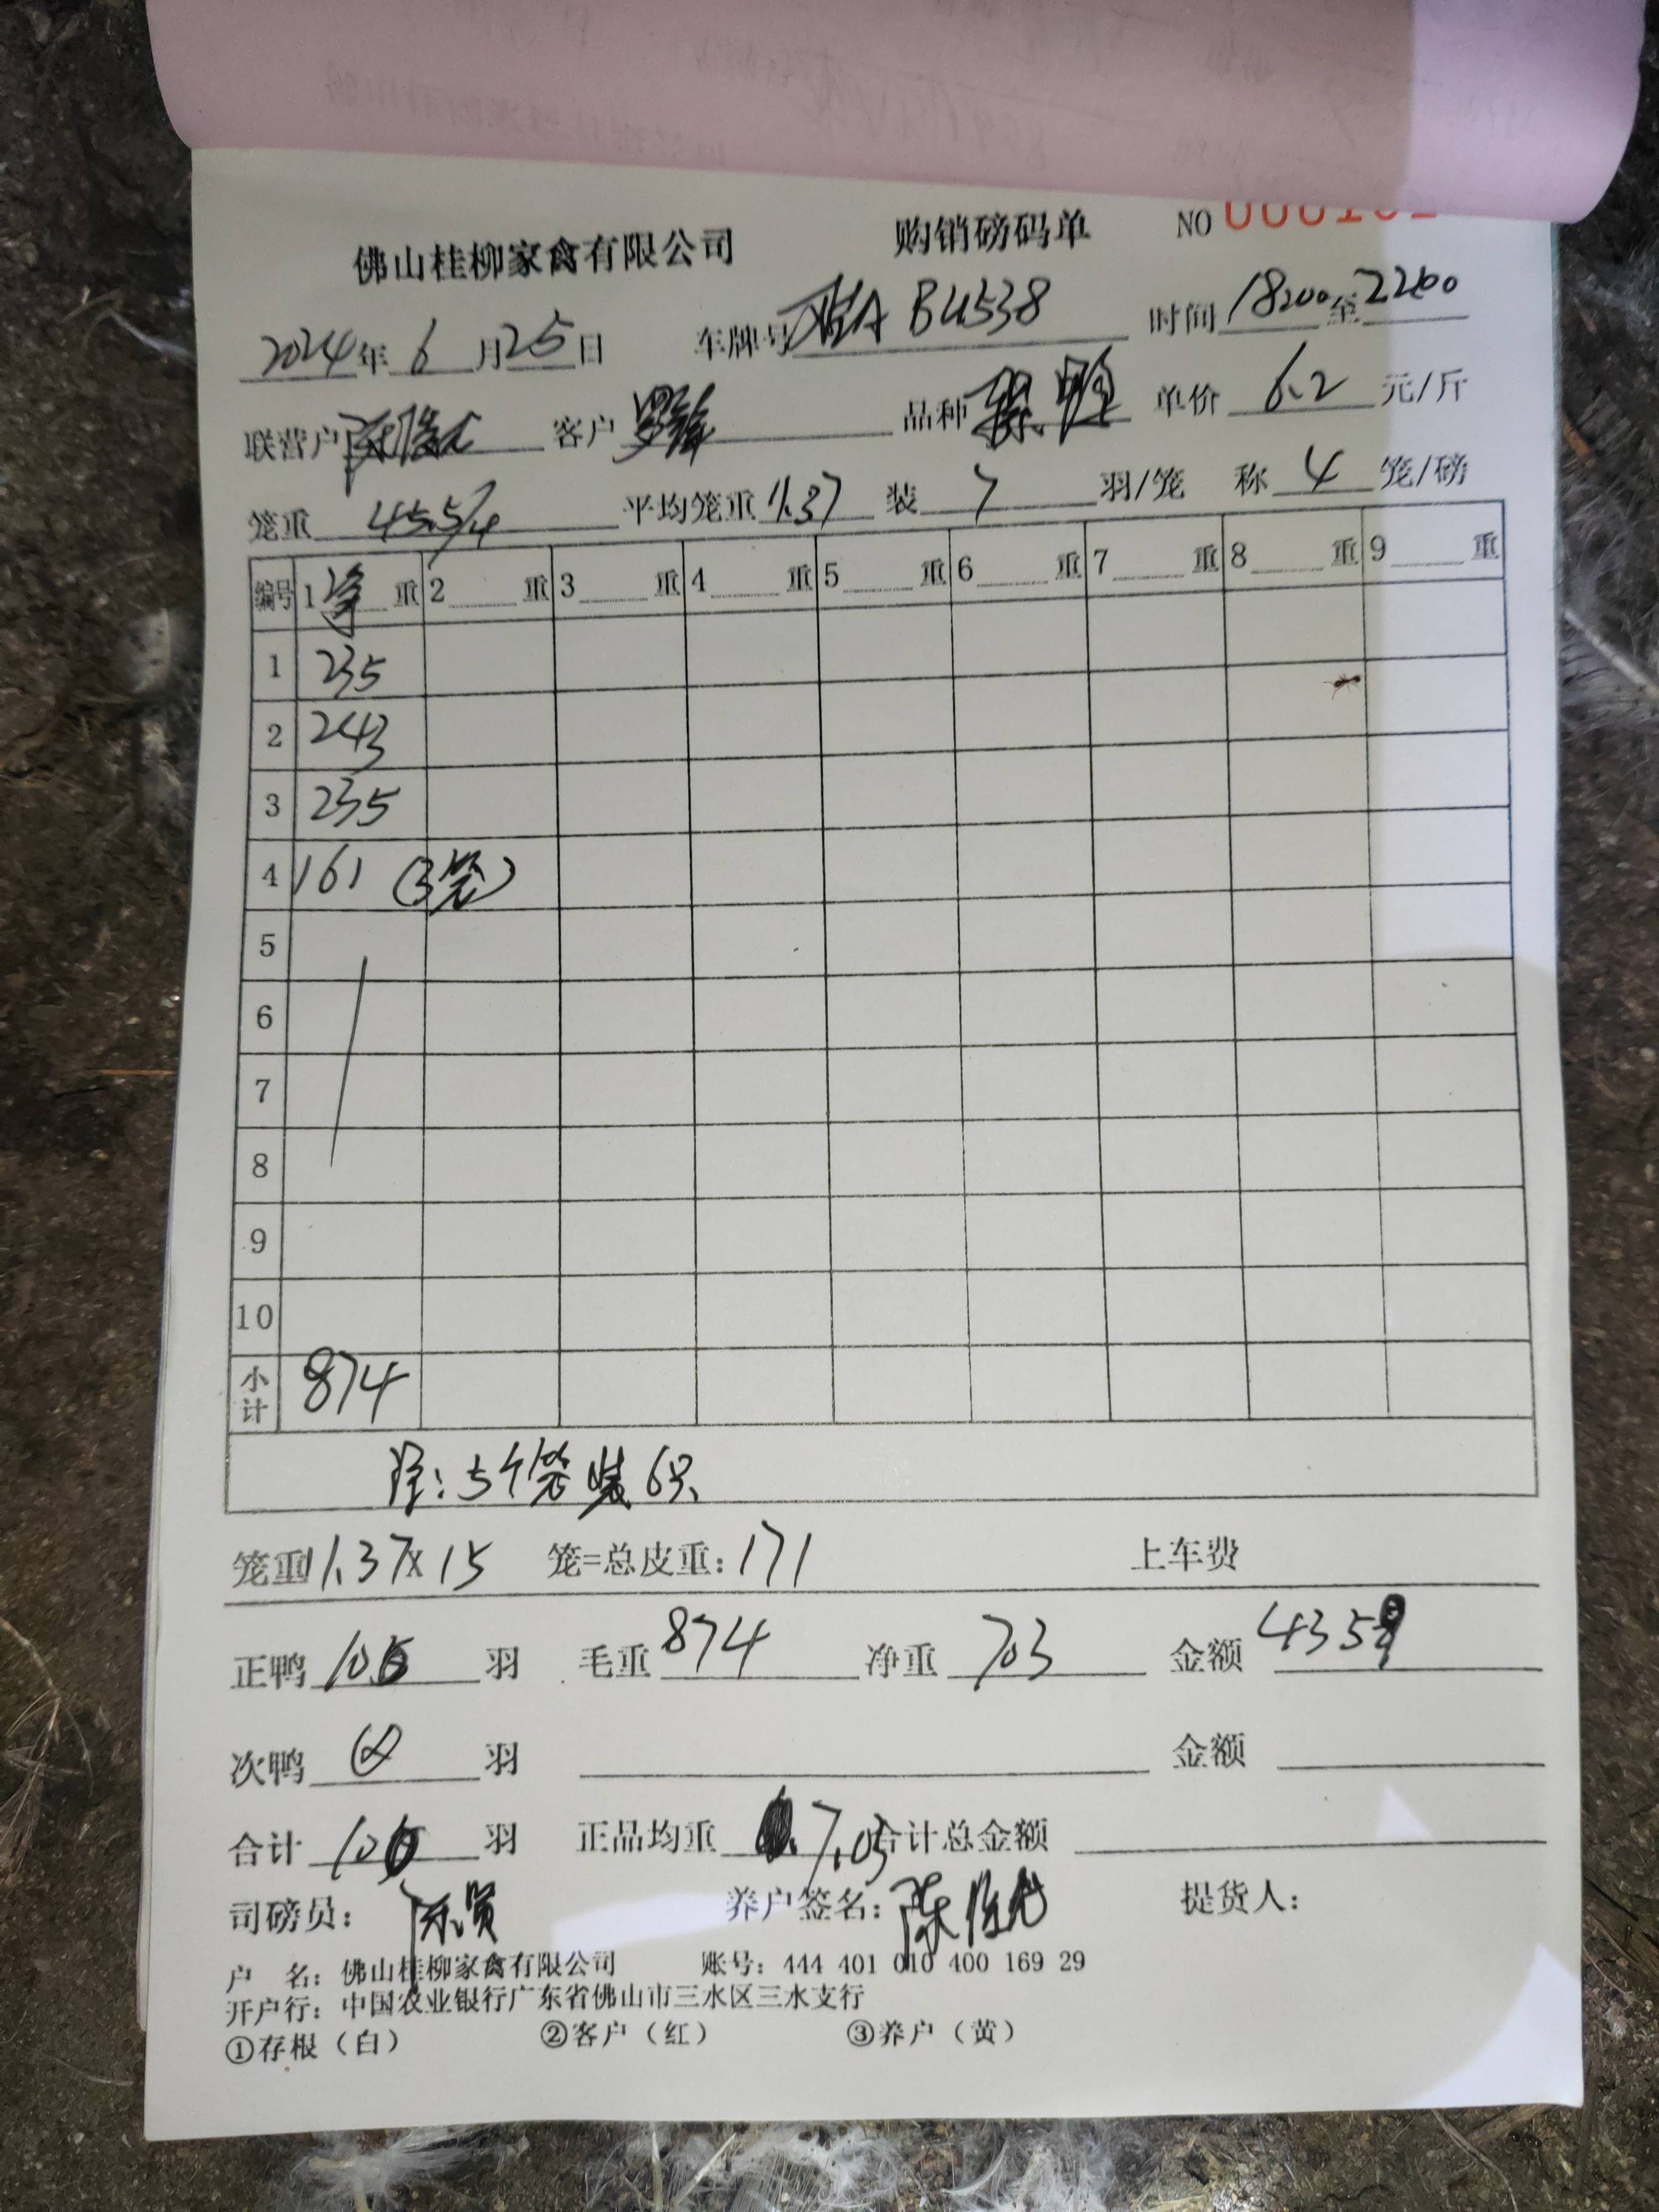 佛山桂柳家禽有限公司 购销磅码单 NO
2024年6月25日 车牌号 A B4538 时间 18:00至22:00
联营户 客户 罗锋 品种 单价 6.2 元/斤
笼重 45.5/4 平均笼重 11.37 装 7 羽/笼 称 4 笼/磅
编号 1 单 重 2 重 3 重 4 重 5 重 6 重 7 重 8 重 9 重
1 235
2 243
3 235
4 161 (3笼)
5
6
7
8
9
10
小计 874
注:5个笼装6只
笼重11.37×15 笼=总皮重:171 上车费
正鸭 100 羽 毛重 874 净重 703 金额 4359
次鸭 0 羽 金额
合计 100 羽 正品均重 7.03 合计总金额
司磅员: 养户签名: 陈 提货人:
户 名:佛山桂柳家禽有限公司 账号:444 401 010 400 169 29
开户行:中国农业银行广东省佛山市三水区三水支行
①存根(白) ②客户(红) ③养户(黄)